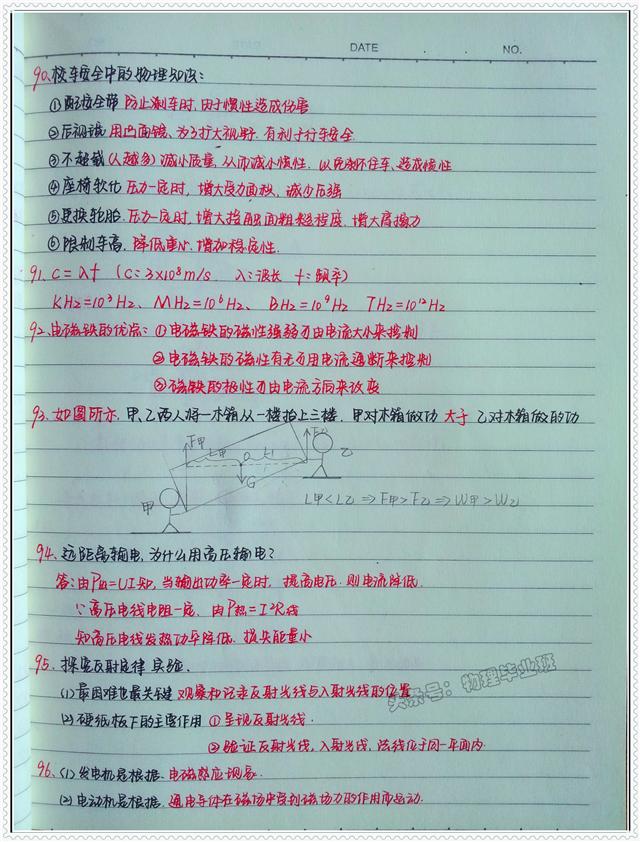 DATE . . NO.
90、校车安全中的物理知识：
①配安全带 防止刹车时,由于惯性造成伤害
②后视镜 用凸面镜、为了扩大视野.有利于行车安全
③不超载(人越多)减小质量,从而减小惯性.以免刹不住车、造成惯性
④座椅软化 压力一定时，增大受力面积，减少压强
⑤更换轮胎.压力一定时,增大接触面粗糙程度.增大摩擦力
⑥限刹车高.降低重心.增加稳定性.
91、C=λf (C=3×10⁸m/s λ:波长 f:频率)
KHz=10³Hz、MHz=10⁶Hz、BHz=10⁹Hz THz=10¹²Hz
92、电磁铁的优点：①电磁铁的磁性强弱可由电流大小来控制
②电磁铁的磁性有无可用电流通断来控制
③磁铁的极性可由电流方向来改变
93、如图所示.甲、乙两人将一木箱从一楼抬上三楼.甲对木箱做功 大于 乙对木箱做的功
F甲 L甲 O L乙 F乙
甲 G 乙
L甲<L乙⇒F甲>F乙⇒W甲>W乙
94、远距离输电,为什么用高压输电?
答:由P输=UI知,当输出功率一定时，提高电压.则电流降低.
∵高压电线电阻一定、由P热=I²R线
知高压电线发热功率降低.损失能量小
95、探究反射定律实验.
(1)最困难也最关键 观察和记录反射光线与入射光线的位置
(2)硬纸板下的主要作用 ①呈现反射光线.
②验证反射光线,入射光线,法线位于同一平面内.
96、(1)发电机是根据.电磁感应现象.
(2)电动机是根据.通电导体在磁场中受到磁场力的作用而运动.
头条号：物理毕业班